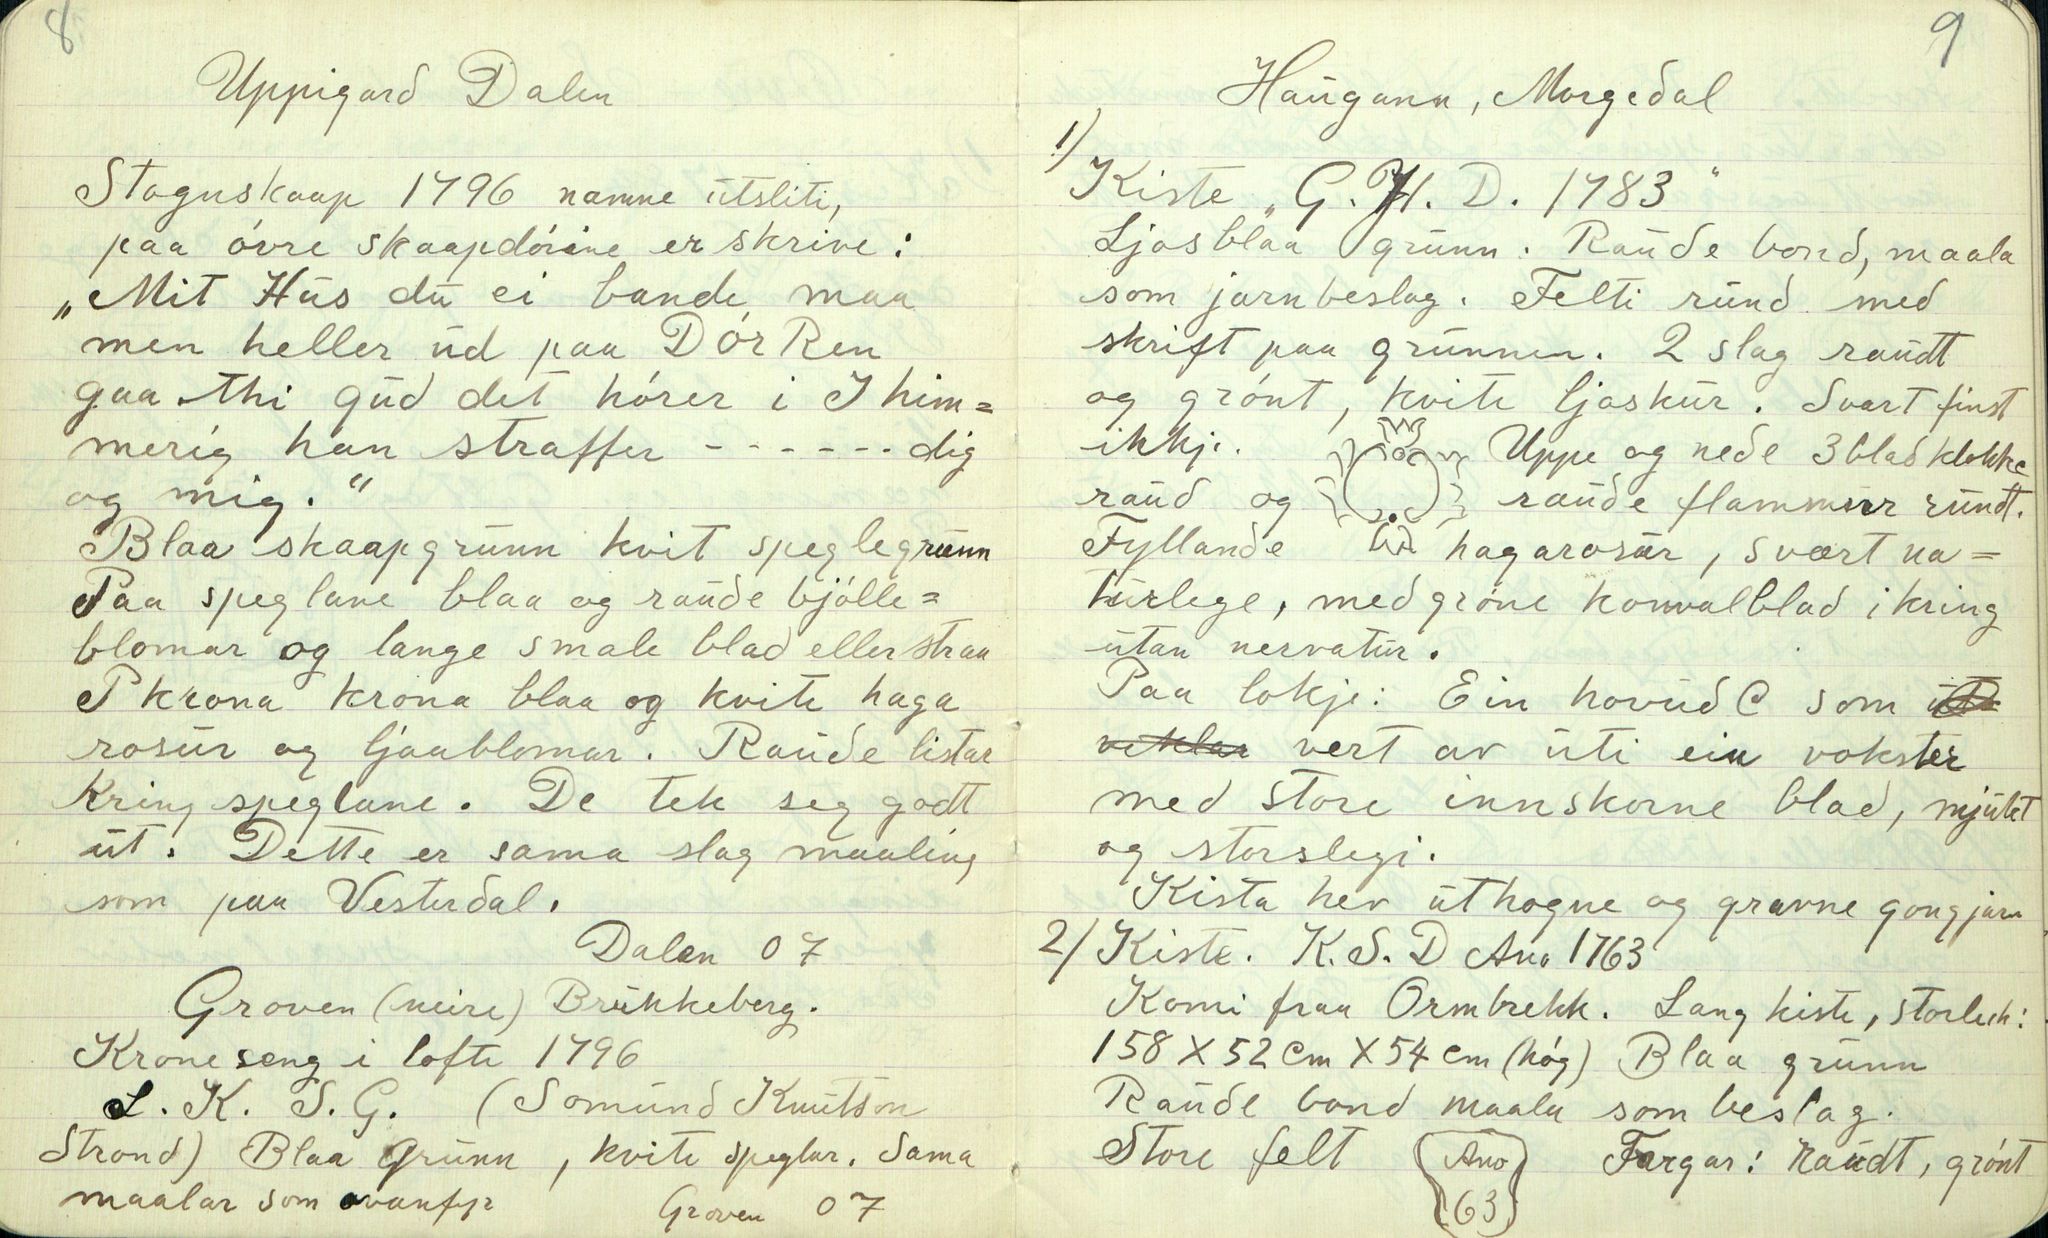 8
Uppigard Dalen
Stoguskaap 1796 namne utsliti,
paa óvre skaapdórine er skrive:
„Mit Hus du ei bande maa
men heller ud paa DórRen
gaa thi gud det hórer i I him=
merig han straffer - - - - - - dig
og mig.“
Blaa skaapgrunn kvit speglegrunn
Paa speglane blaa og raude bjólle=
blomar og lange smale blad eller straa
P krona krona blaa og kvite haga
rosur og ljaablomar. Raude listar
kring speglane. De tek seg godt
ut. Dette er sama slag maaling
som paa Vesterdal.
Dalen 07
Groven (neire) Brukkeberg.
Krone seng i lofte 1796
S. K. S. G. (Somund Knutson
Strond) Blaa grunn, kvite speglar. Sama
maalar som ovanfyr
Groven 07
9
Haugann, Morgedal
1)
Kiste „G. H. D. 1783“
Ljosblaa grunn. Raude bond, maala
som jarnbeslag. Felti rund med
skrift paa grunnen. 2 slag raudt
og grónt, kvite ljoskur. Svart finst
ikkje. Uppe og nede 3blad klokke
raud og raude flammurr rundt.
Fyllande hagarosur, svært na=
turlege, med gróne konvalblad ikring
utan nervatur.
Paa lokje: Ein hovud C som ut
veklar vert av uti ein vokster
med store innskorne blad, mjukt
og storslegi.
Kista hev uthogne og gravne gongjarn
2) Kiste. K. S. D Ano 1763
Komi fraa Ormbrekk. Lang kiste, storleik:
158 X 52 cm X 54 cm (hóg) Blaa grunn
Raude bond maala som beslag.
Store felt Ano 63 Fargar: raudt, grónt